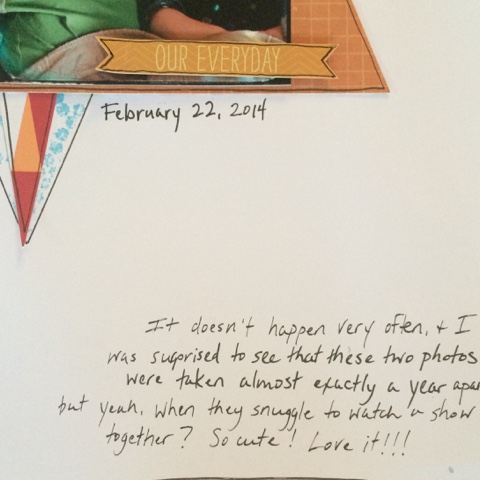 OUR EVERYDAY
February 22, 2014
It doesn't happen very often, + I
was suprised to see that these two photos
were taken almost exactly a year apar
but yeah, when they snuggle to watch a show
together? So cute! Love it!!!